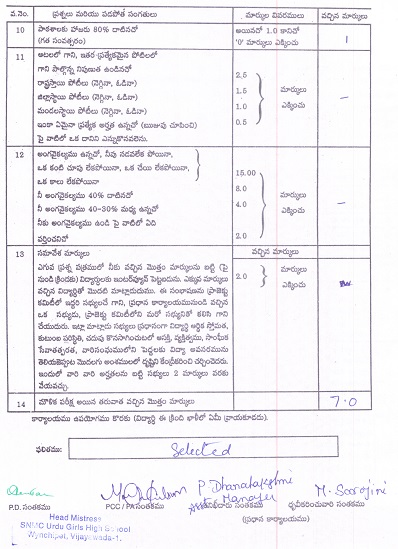 వ.నెం. ప్రశ్నలు మరియు పడపోత సంగతులు మార్కుల వివరములు వచ్చిన మార్కులు
10 పాఠశాలకు హాజరు 80% దాటినదో అయినచో 1.0 కానిచో 1
(గత సంవత్సరం) '0' మార్కులు ఎక్కించు
11 ఆటలలో గాని, ఇతర ప్రత్యేకమైన పోటీలలో
గాని పాల్గొన్న నిపుణత ఉండినచో 2.5
రాష్ట్రస్థాయి పోటీలు (నెగ్గినా, ఓడినా) 1.5 మార్కులు
జిల్లాస్థాయి పోటీలు (నెగ్గినా, ఓడినా) 1.0 ఎక్కించు –
మండలస్థాయి పోటీలు (నెగ్గినా, ఓడినా) 0.5
ఇంకా ఏమైనా ప్రత్యేక అర్హత ఉన్నచో (ఋజువు చూపించి)
పై వాటిలో ఒక దానిని ఎన్నుకొనవలెను.
12 అంగవైకల్యము ఉన్నచో, నీవు నడవలేక పోయినా,
ఒక కంటి చూపు లేకపోయినా, ఒక చేయి లేకపోయినా, 15.00
ఒక కాలు లేకపోయినా 8.0
నీ అంగవైకల్యము 40% దాటినచో 4.0 మార్కులు
నీ అంగవైకల్యము 40-30% మధ్య ఉన్నచో ఎక్కించు –
నీకు అంగవైకల్యము ఉండి పై వాటిలో ఏది 2.0
వర్తించనిచో
13 సమావేశ మార్కులు వచ్చిన మార్కులు
ఎగువ ప్రశ్న పత్రములో నీకు వచ్చిన మొత్తం మార్కులను బట్టి (పై 2.0 మార్కులు
నుండి క్రిందకు) విద్యార్థులకు ఇంటర్వ్యూకి పెట్టబడును. ఎక్కువ మార్కులు ఎక్కించు
వచ్చిన విద్యార్థితో మొదటి మాట్లాడుదుము. ఈ సంభాషణను ప్రాజెక్టు
కమిటీలో ఇద్దరి సభ్యులచే గాని, ప్రధాన కార్యాలయమునుండి వచ్చిన
ఒక సభ్యుడు, ప్రాజెక్టు కమిటీలోని మరో సభ్యునితో కలిసి గాని
చేయుదురు. ఇట్లా మాట్లాడు సభ్యులు ప్రధానంగా విద్యార్థి ఆర్థిక స్తోమత,
కుటుంబ పరిస్థితి, చదువు కొనసాగించుటలో ఆసక్తి, వ్యక్తిత్వము, సాంఘిక
సేవాతత్పరత, వారిసంఘములోని పెద్దలకు విద్యా అవసరమును
తెలియజెప్పుట మొదలగు అంశములలో దృష్టిని కేంద్రీకరించి చర్చించెదరు.
ఇందులో వారి వారి అర్హతలను బట్టి సభ్యులు 2 మార్కులు వరకు
వేయవచ్చు.
14 మౌఖిక పరీక్ష అయిన తరువాత వచ్చిన మొత్తం మార్కులు 7.0
కార్యాలయము ఉపయోగము కొరకు (విద్యార్థి ఈ క్రింది ఖాళీలో ఏమీ వ్రాయకూడదు).
ఫలితము: Selected
P. Dhanalakshmi
Manager M. Soorojini
P.D. సంతకము PCC / PA సంతకము ధృవీకరించువారి సంతకము
(ప్రధాన కార్యాలయం)
Head Mistress
SNMC Urdu Girls High School
Wynchipet, Vijayawada-1.